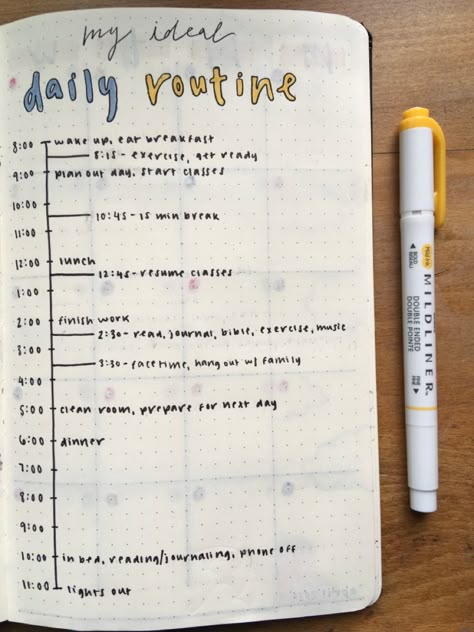 my ideal
daily routine
8:00 wake up, eat breakfast
8:15 - exercise, get ready
9:00 plan out day, start classes
10:00
10:45 - 15 min break
11:00
12:00 lunch
12:45 - resume classes
1:00
2:00 finish work
2:30 - read, journal, bible, exercise, music
3:00
3:30 - facetime, hang out w/ family
4:00
5:00 clean room, prepare for next day
6:00 dinner
7:00
8:00
9:00
10:00 in bed, reading/journaling, phone off
11:00 lights out
MILDLINER
DOUBLE ENDED
DOUBLE POINTE
BOLD